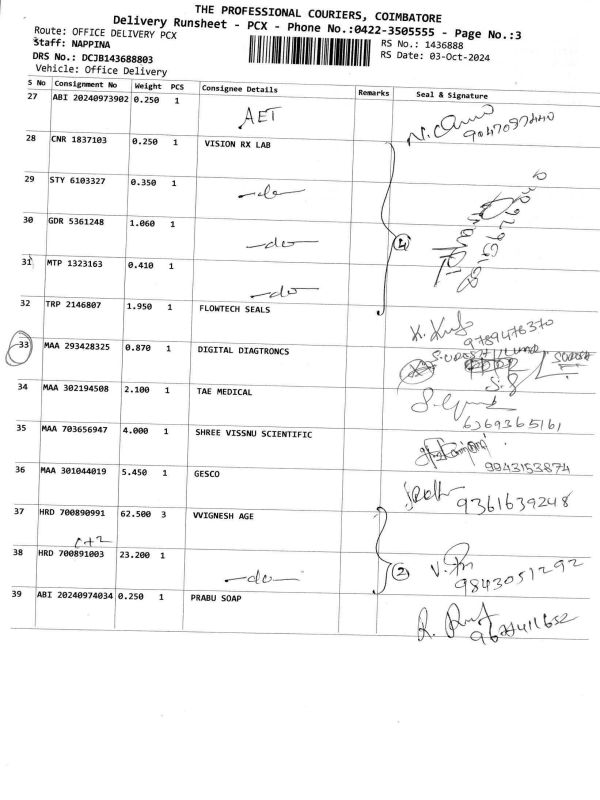 THE PROFESSIONAL COURIERS, COIMBATORE
Delivery Runsheet - PCX - Phone No.:0422-3505555 - Page No.:3
Route: OFFICE DELIVERY PCX
RS No.: 1436888
Staff: NAPPINA
RS Date: 03-Oct-2024
DRS No.: DCJB143688803
Vehicle: Office Delivery
S No Consignment No Weight PCS Consignee Details Remarks Seal & Signature
27 ABI 20240973902 0.250 1 AET
9047097440
28 CNR 1837103 0.250 1 VISION RX LAB
29 STY 6103327 0.350 1 -do-
30 GDR 5361248 1.060 1 -do-
4
31 MTP 1323163 0.410 1 -do-
32 TRP 2146807 1.950 1 FLOWTECH SEALS
9789476370
33 MAA 293428325 0.870 1 DIGITAL DIAGTRONCS
34 MAA 302194508 2.100 1 TAE MEDICAL
6369365161
35 MAA 703656947 4.000 1 SHREE VISSNU SCIENTIFIC
9943153874
36 MAA 301044019 5.450 1 GESCO
9361639248
37 HRD 700890991 62.500 3 VVIGNESH AGE
2
38 HRD 700891003 23.200 1 -do-
9843051292
39 ABI 20240974034 0.250 1 PRABU SOAP